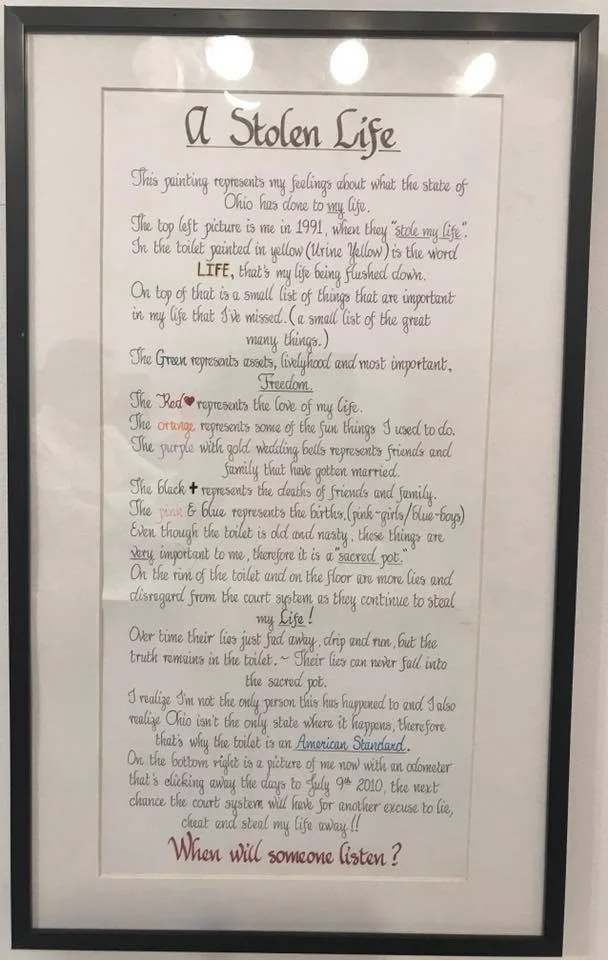 A Stolen Life
This painting represents my feelings about what the state of
Ohio has done to my life.
The top left picture is me in 1991, when they "stole my life".
In the toilet painted in yellow (Urine Yellow) is the word
LIFE, that's my life being flushed down.
On top of that is a small list of things that are important
in my life that I've missed. (a small list of the great
many things.)
The Green represents assets, livelyhood and most important,
Freedom.
The Red♥ represents the love of my life.
The orange represents some of the fun things I used to do.
The purple with gold wedding bells represents friends and
family that have gotten married.
The black ✝ represents the deaths of friends and family.
The pink & blue represents the births, (pink~girls/blue~boys)
Even though the toilet is old and nasty, these things are
very important to me, therefore it is a "sacred pot."
On the rim of the toilet and on the floor are more lies and
disregard from the court system as they continue to steal
my Life!
Over time their lies just fad away, drip and run, but the
truth remains in the toilet. ~ Their lies can never fall into
the sacred pot.
I realize I'm not the only person this has happened to and I also
realize Ohio isn't the only state where it happens, therefore
that's why the toilet is an American Standard.
On the bottom right is a picture of me now with an odometer
that's clicking away the days to July 9th 2010, the next
chance the court system will have for another excuse to lie,
cheat and steal my life away!!
When will someone listen?